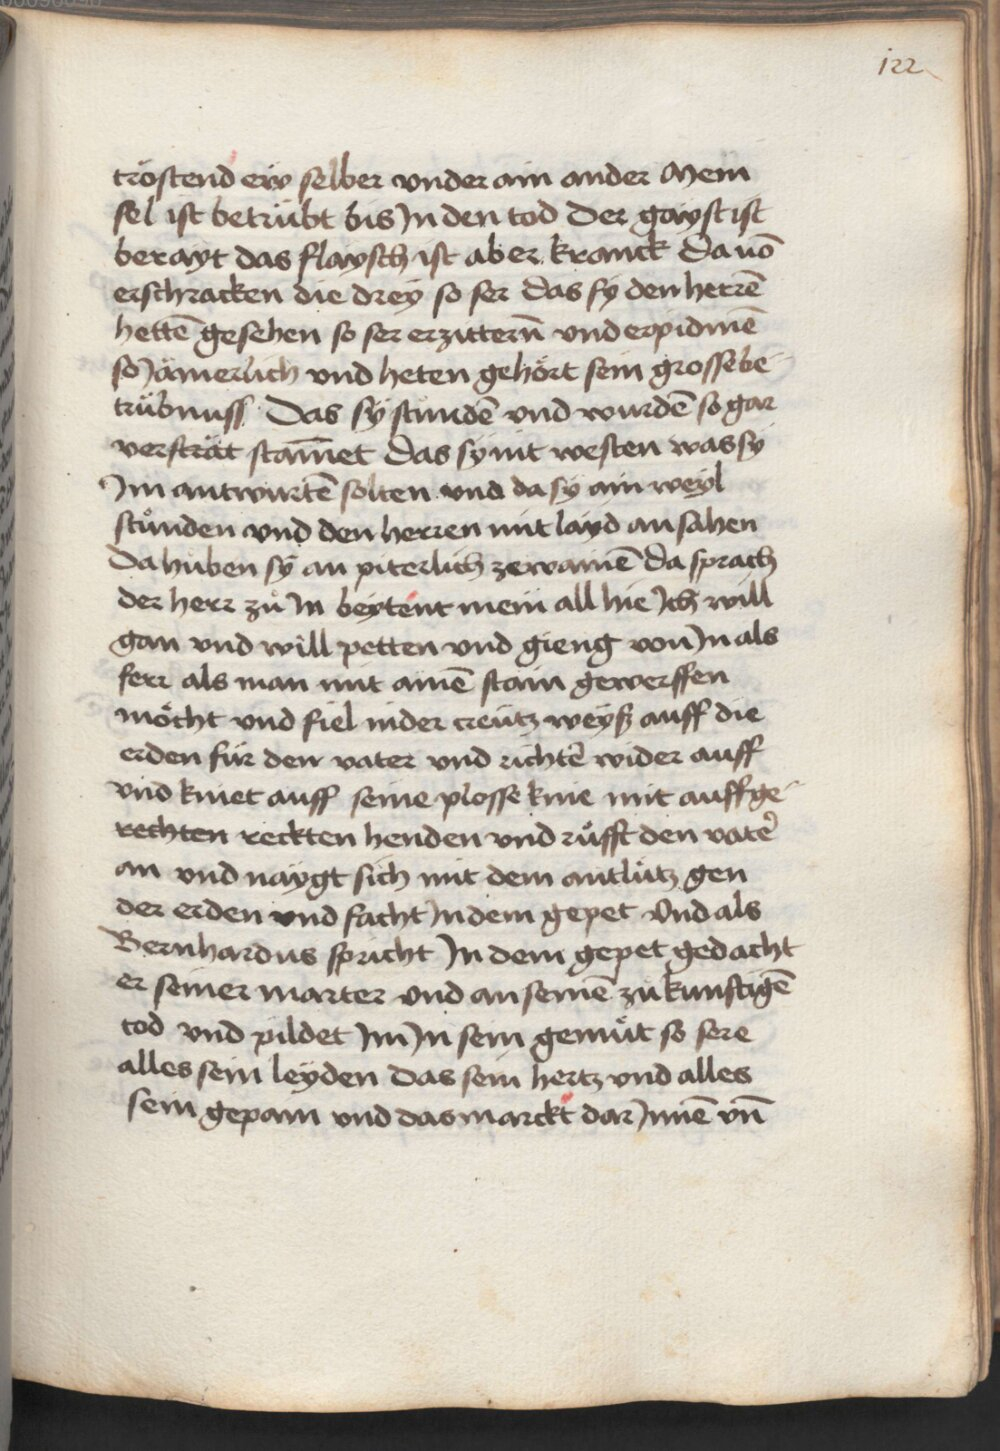 122
tröstend eẅ selber vnder ain ander Mein
sel ist betrübt bis Jn den tod Der gayst ist
berayt das flaÿsch ist aber kranck Da uō
erschracken die dreÿ so ser das sÿ den herrē
hettē gesehen so ser erzittern̄ vnd erpidmē
so Jämerlich vnd heten gehört sein grosse be-
trübnuss Das sÿ stundē vnd wurdē so gar
verstrāt stam̄et das sÿ nit westen was sÿ
Jm antwurtē solten vnd da sÿ ain weÿl
stůnden vnd den herren mit layd an sahen
Da hůben sÿ an piterlich zewainē Da sprach
der herr zů Jn beÿtent mein all hie Jch will
gan vnd will petten vnd gieng von Jn als
ferr als man mit ainē stain gewerffen
möcht vnd fiel nider creütz weÿß auff die
erden für den vater vnd richtē wider auff
vnd kniet auff seine plosse knie mit auff ge-
rechten reckten henden vnd růfft den vater̄
an vnd naÿgt sich mit dem antlütz gen
der erden vnd facht Jn dem gepet Vnd als
Bernhardus spricht Jn dem gepet gedacht
er seiner marter vnd an seinē zu kunftigē
tod vnd pildet Jm Jn sein gemůt so sere
alles sein leÿden Das sein hertz vnd alles
sein gepain vnd das marckt dar Jnnē vn̄